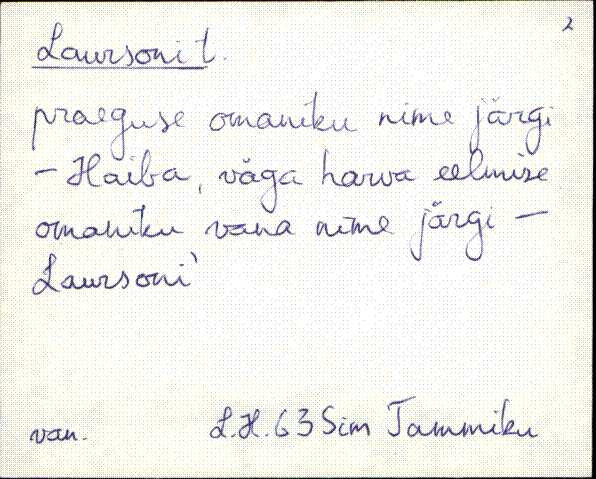 2
Laursoni t.
praeguse omaniku nime järgi
- Haiba, väga harva eelmise
omaniku vana nime järgi -
Laursoni'
van. L.H. 63 Sim Tammiku